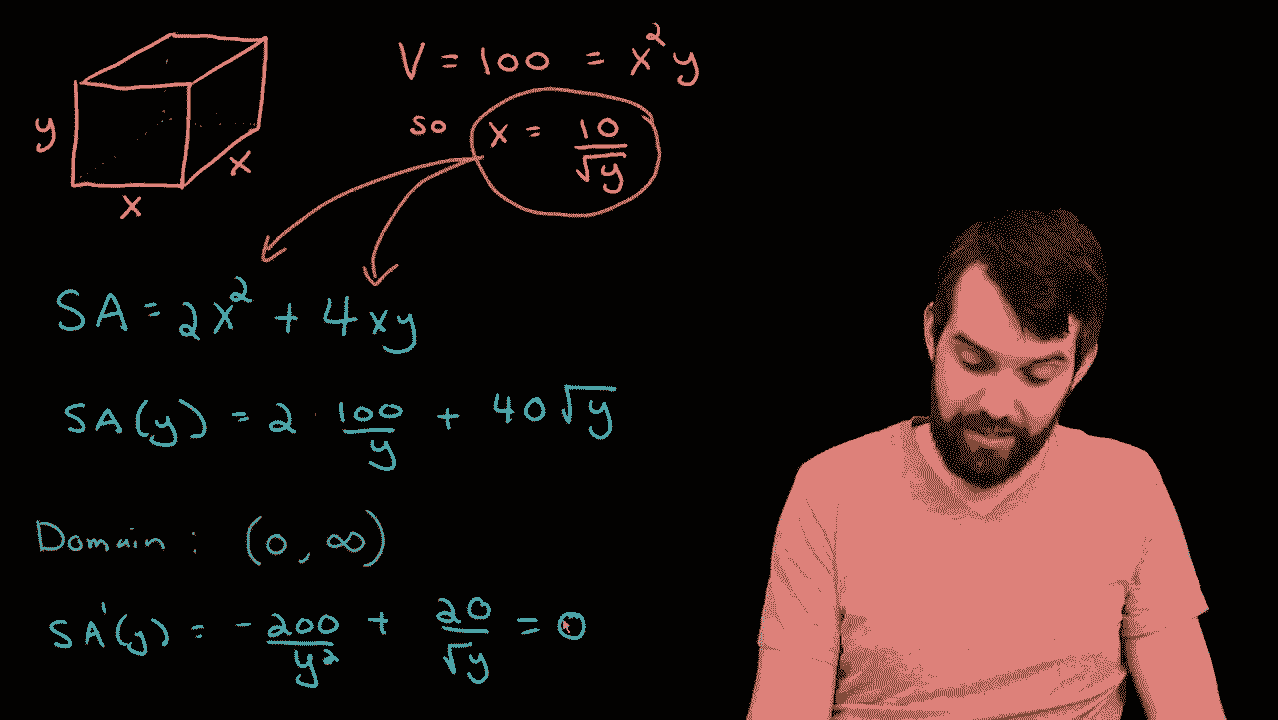 V = 100 = x²y
so x = 10/√y
y
x
x
SA = 2x² + 4xy
SA(y) = 2 · 100/y + 40√y
Domain : (0, ∞)
SA'(y) = -200/y² + 20/√y = 0